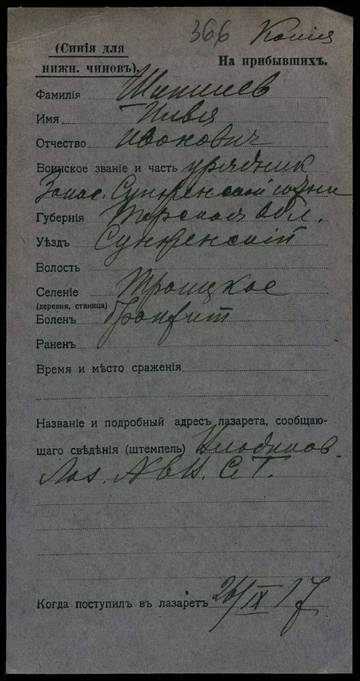 366 Копія
(Синія для нижн. чиновъ).
На прибывшихъ.
Фамилія Шишиев
Имя Илья
Отчество Иванович
Воинское званіе и часть урядник
Запас. Сунженской сотни
Губернія Терская обл.
Уѣздъ Сунженскій
Волость
Селеніе Троицкое
(деревня, станица)
Боленъ Бронхит
Раненъ
Время и мѣсто сраженія
Названіе и подробный адресъ лазарета, сообщаю-
щаго свѣдѣнія (штемпель)
Лаз.
Когда поступилъ въ лазаретъ 26/IX 17